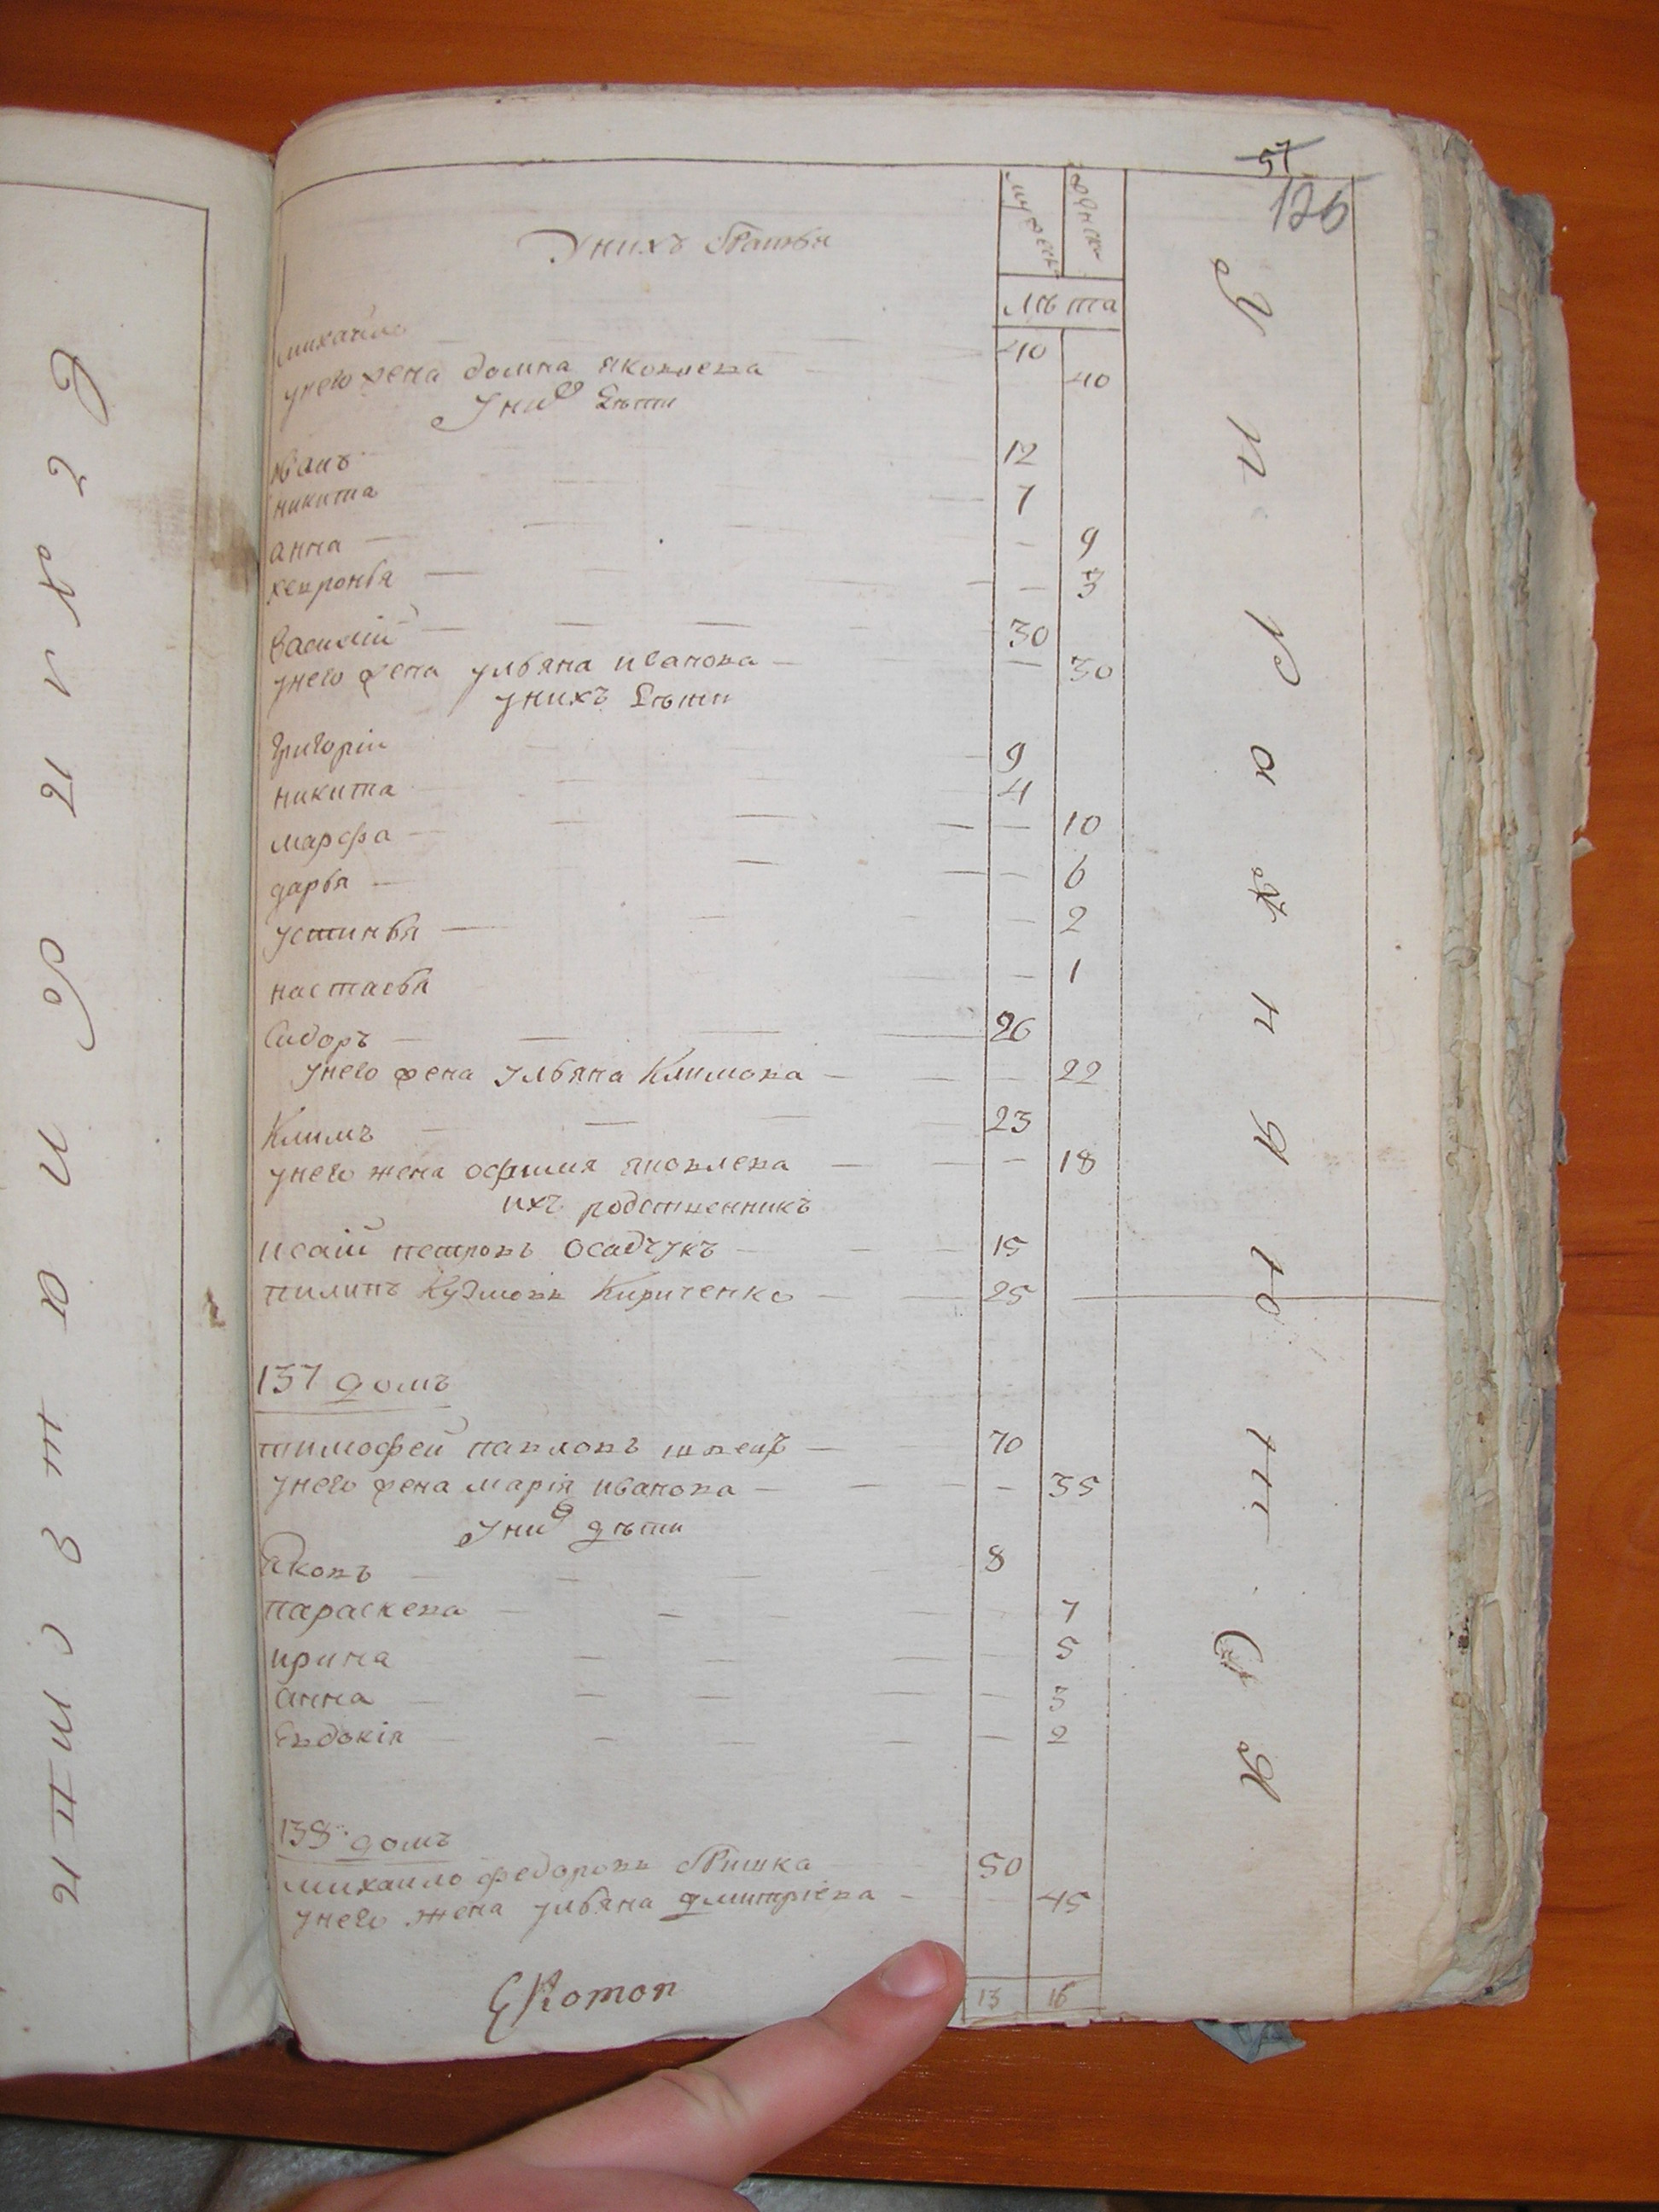 57
126
мужеск женска
лѣта
Унихъ братья
михайло 40
унего жена домна яковлева 40
Уних дѣти
иванъ 12
никита 7
анна 9
хевронья 3
Василій 30
унего жена ульяна иванова 30
унихъ дѣти
григорій 9
никита 4
марфа 10
дарья 6
устинья 2
настасья 1
Сидоръ 26
унего жена ульяна Климова 22
Климъ 23
унего жена офимия яковлева 18
ихъ родственникъ
исаій петровъ Осадчукъ 15
пилипъ Кузмовъ Кириченко 25
137 домъ
тимофей павловъ швецъ 70
унего жена марія иванова 35
Уних дѣти
Яковъ 8
параскева 7
ирина 5
анна 3
Евдокія 2
138 домъ
михаило федоровъ Гришка 50
унего жена ульяна дмитріева 45
13 16